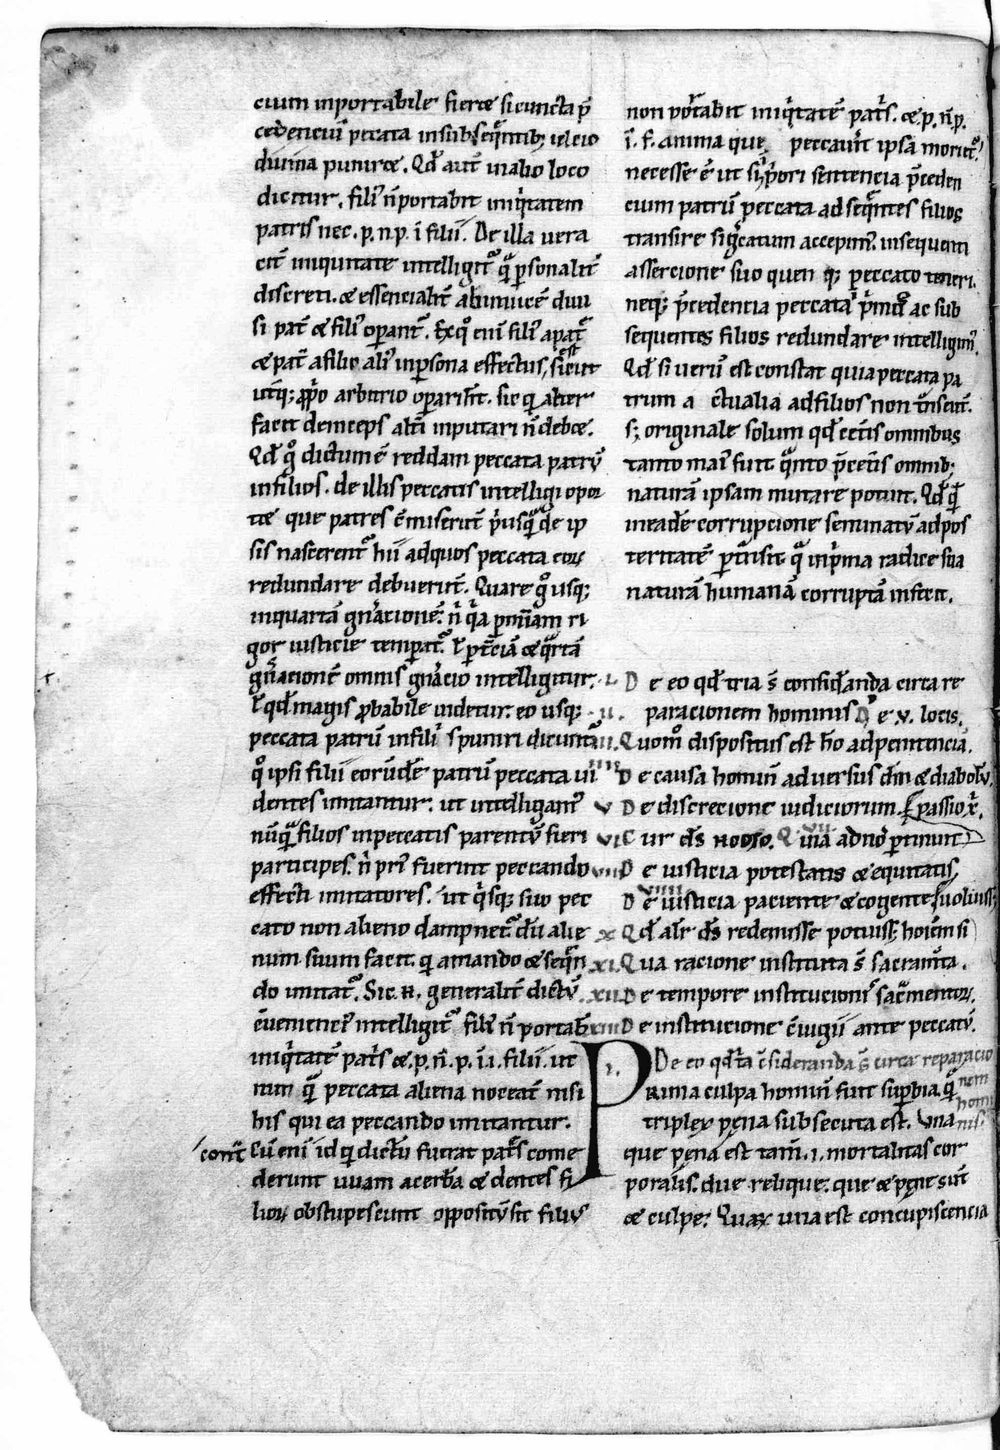 cium inportabile fieret si cuncta p̄
cedenciū peccata in subseq̄ntib; uel eio
diuina puniret. Qd̄ aut̄ in alio loco
dicitur. filiꝰ n̄ portabit iniq̇tatem
patris nec. p. n p. ī filii. De illa uera
cit̄ iniquitate intelligit᷑ q̄ ꝑsonalit᷑
discreti. et essencialit̄ abinuicē duu
si pat̄ et filiꝰ oꝑant᷑. Ex q̊ eni filiꝰ a pat᷑
et pat̄ a filio aliꝰ in ꝑsona effectus, est sicut
utiq; ꝓpo arbitrio oꝑari
facit deinceps alt̄i inputari n̄ debet.
Qd̄ g̊ dictum ē reddam peccata patrū
in filios. de illis peccatis intelligi opor
tet que patres cmiserūt p̓usq̄ de ip
sis nascerent᷑ hii ad quos peccata eoꝝ
redundare debuerūt. Quare g̊ usq;
in quartā gn̄acionē: n̄ q̇a ꝑ
gor iusticie temperat᷑. ł ꝑ t̄ciā et q̄rtā
gn̄acionē omnis gn̄acio intelligitur.
ł qd̄ magis ꝓbabile uidetur. eo usq;
peccata patrū in filiis puniri dicunt᷑
q̊ ipsi filii eorūdē patrū peccata ui
dentes imitantur: ut intelligamꝰ
nūq̄ filios in peccatis parentū fieri
participes. n̄ priꝰ fuerint peccando
effecti imitatores. ut q̇sq; suo pec
cato non alieno dampnet᷑ dū alie
num suum facit. q̇ amando et seq̄n
do imitat᷑. Sic. N. generalit̄ dictū.
intelligit᷑ filiꝰ n̄ portab̄
iniq̇tatē pat̓s et. p. n̄. p. ī i. filii. ut
num q̄ peccata aliena noceāt nisi
his qui ea peccando imitantur.
cont̄ Cū eni id q̇ dictū fuerat pat̓s come
derunt uuam acerbā et dentes fi
lioꝝ obstupescunt oppositū sit filiꝰ
non portabit iniq̇tatē pat̓s. et. p. n̄ p.
ī. f. anima que peccauīt ipsā moriet᷑!
necesse ē ut suꝑiori sentencia p̄ceden
cium patrū peccata ad seq̄ntes filios
transire sig̓catum accepimꝰ. in sequenti
assercione suo quen q; peccato teneri.
neq; p̄cedencia peccata p̓moꝝ ac sub
sequentes filios redundare intelligimꝰ.
Qd̄ si uerū est constat quia peccata pa
trum actualia ad filios non t̄nseunt.
s; originale solum qd̄ cet̄is omnibus
tanto maiꝰ fuit q̄nto p̄ cet̄is omnib;
naturā ipsam mutare potuit. Qd̄ q̄
in eadē corrupcione seminatū ad pos
teritatē ꝑt̄nsit q̄ in p̓ma radice sua
naturā humanā corruptā infecit.
.I. De eo qd̄ tria s̄ considanda circa re
.II. paracionem hominis De .v. locis.
III. Quomō dispositus est hō ad penitenciā.
IIII De causa homin̄ aduersus dm̄ et diabolū.
V De discrecione iudiciorum. passio x̄.
VI Cur ds̄ homo. VII Quia ad nr̄ ꝑtinuit
VIII De iusticia potestatis et equitatis.
VIIII De iusticia paciente et cogente si uoluiss;
X Qd̄ alr̄ ds̄ redemisse potuiss; hoiem si
XI. Qua racione instituta s̄ sacram̄ta.
XII De tempore institucionis sac̄mentoꝝ.
XIII De institucione c̄iugii ante peccatū.
I. De eo qd̄ t̓a c̄sideranda s̄ circa reparacio
nem
homi
nis.
Prima culpa homin̄ fuit supbia. q̄
triplex pena subsecuta est. Una
que pena est tam̄. i. mortalitas cor
poralis. due relique: que et pene sūt
et culpe: Quaꝝ una est concupiscencia